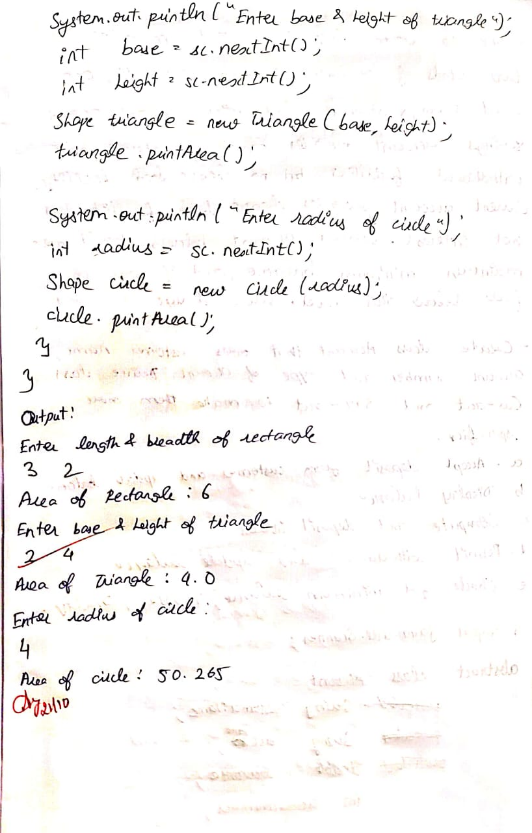 System.out.println ("Enter base & height of triangle");
int base = sc.nextInt();
int height = sc.nextInt();
Shape triangle = new Triangle (base, height);
triangle.printArea();
System.out.println ("Enter radius of circle");
int radius = sc.nextInt();
Shape circle = new Circle (radius);
circle.printArea();
}
}
Output:
Enter length & breadth of rectangle
3 2
Area of Rectangle : 6
Enter base & height of triangle
2 4
Area of Triangle : 4.0
Enter radius of circle :
4
Area of circle : 50.265
21/10